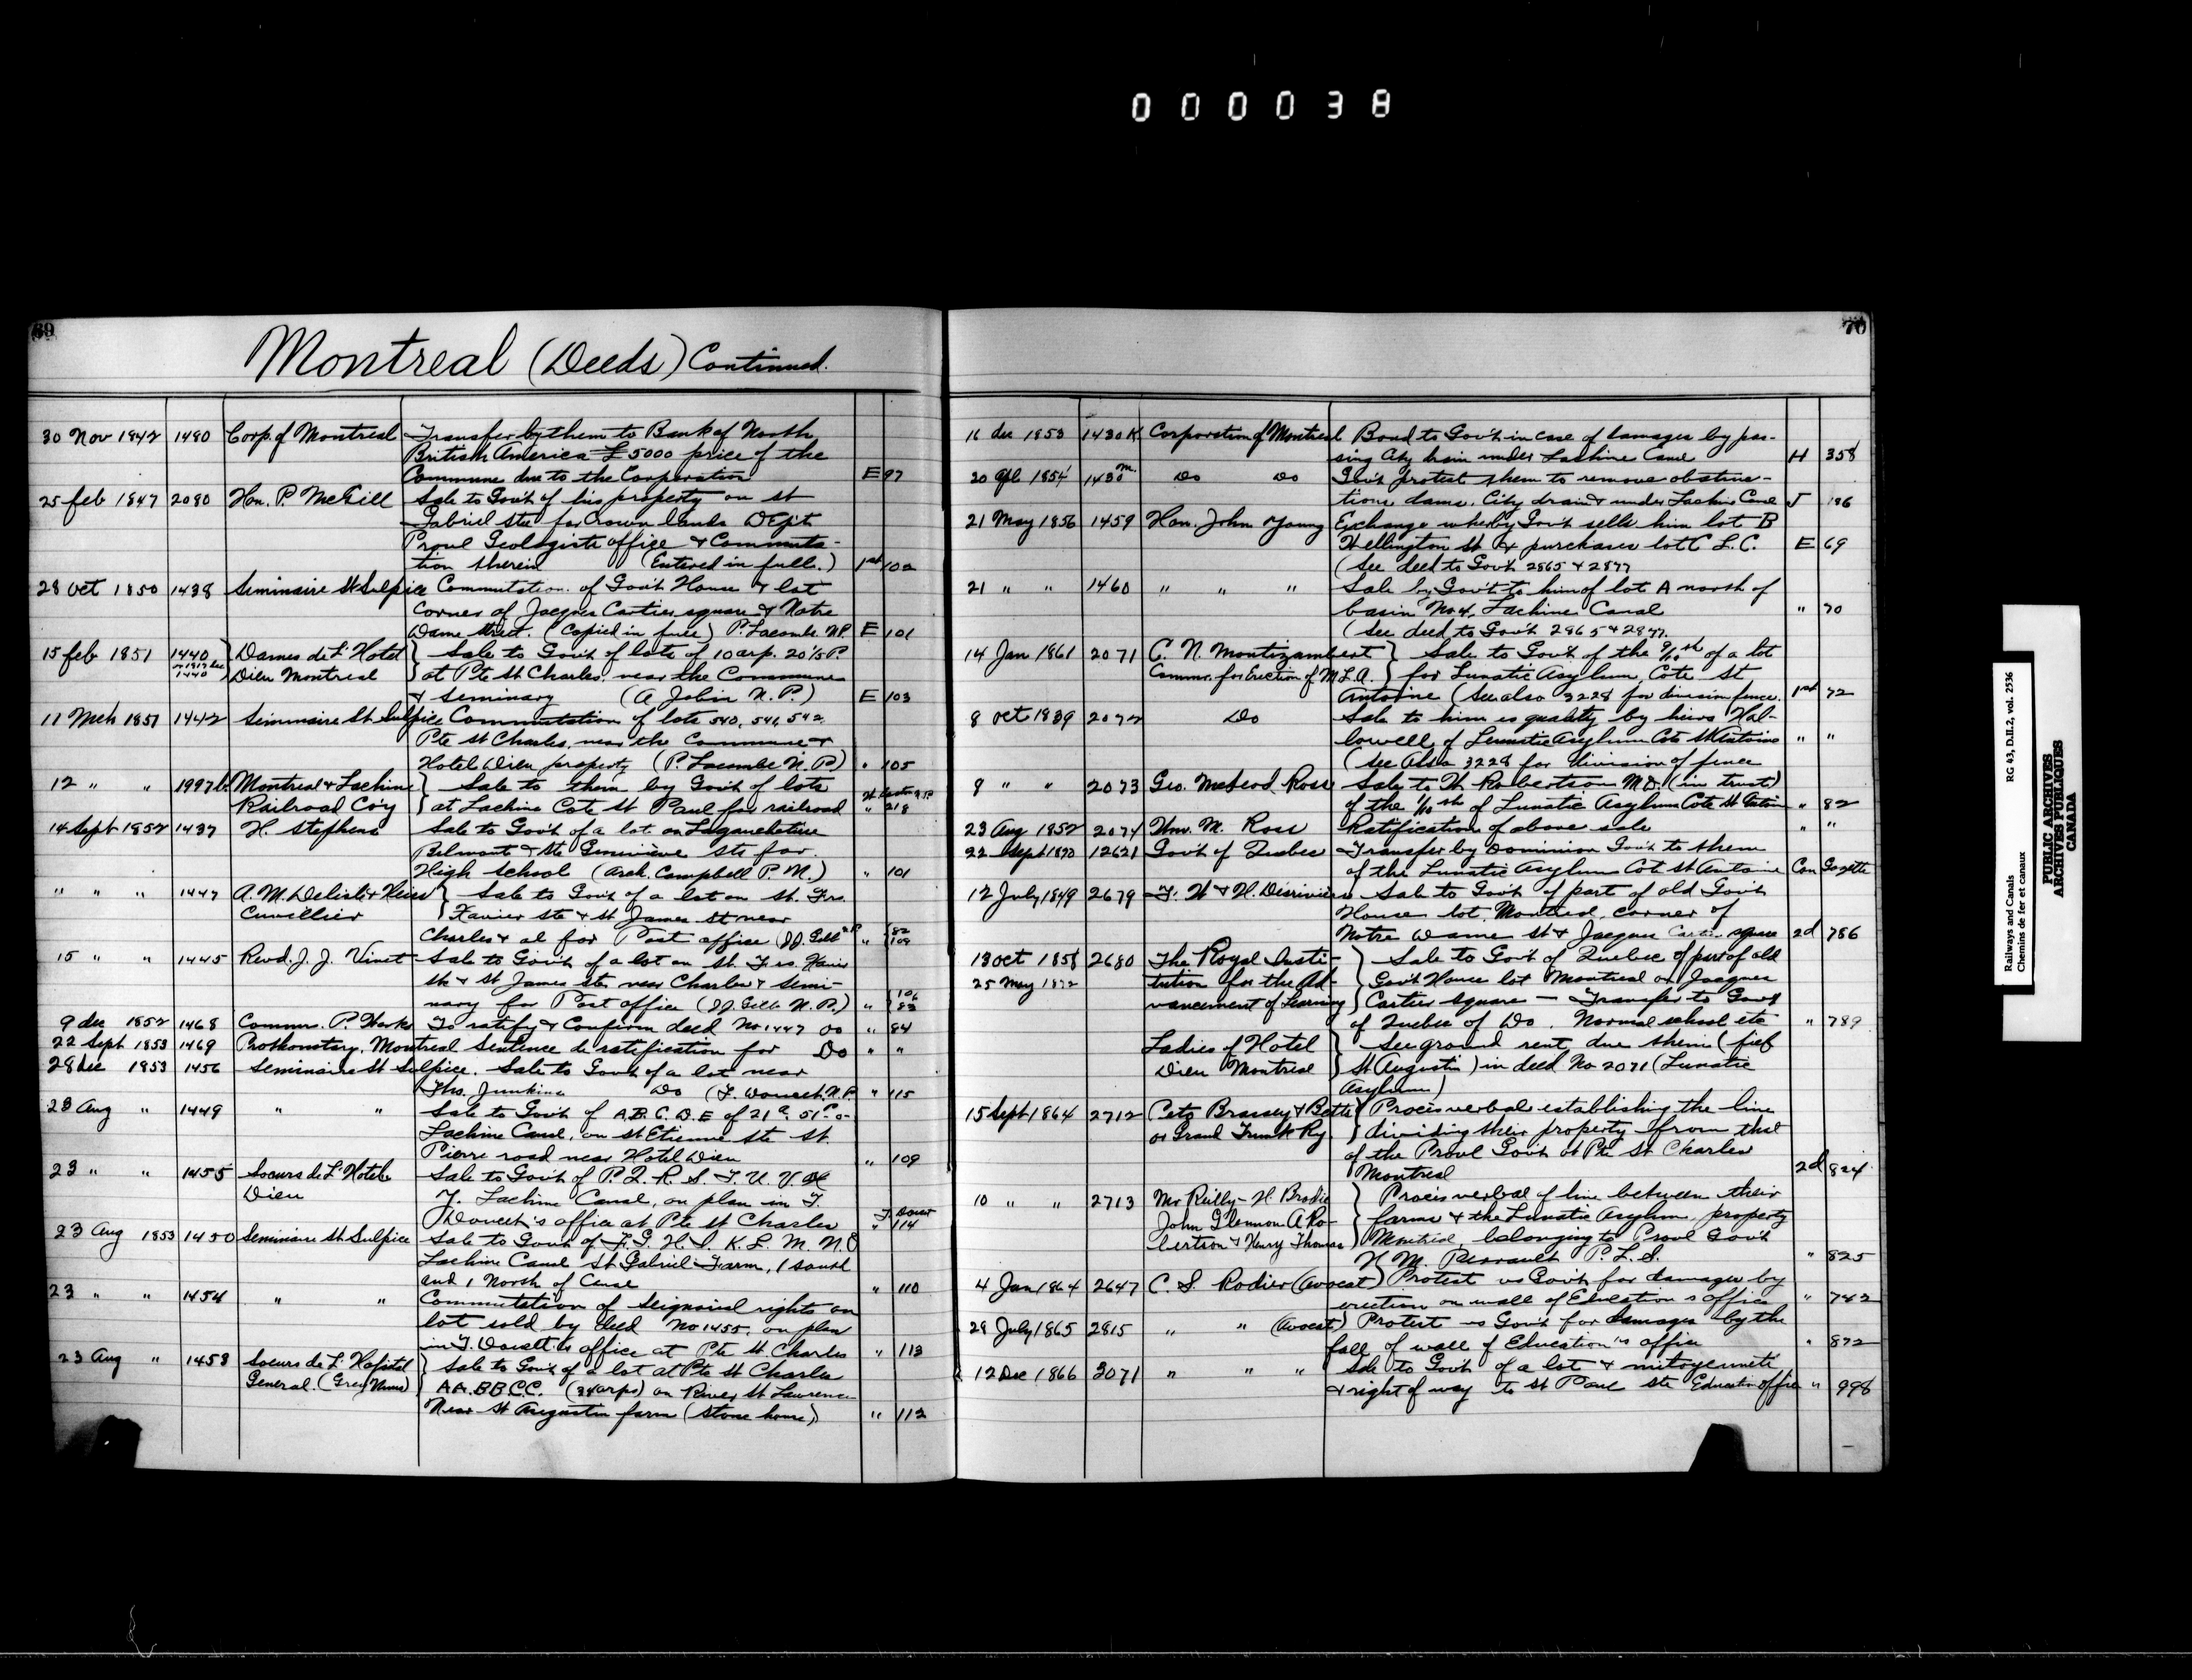 000038
69
Montreal (Deeds) Continued.
30 Nov 1842 1480 Corp. of Montreal Transfer by them to Bank of North
British America £5000 price of the
Commune due to the Corporation E 97
25 feb 1847 2080 Hon. P. McGill Sale to Gov't of his property on st
Gabriel sts for Crown lands Dep't
Provl Geologists office & Commuta-
tion therein (Entered in full.) 1st 102
28 Oct 1850 1438 Seminaire St Sulpice Commutation of Gov't House & lot
corner of Jacques Cartier square & Notre
Dame street. (Copied in full) P. Lacombe N.P. E 101
15 feb 1851 1440 Dames de L' Hotel Sale to Gov't of lots of 10 arp. 20 1/5 P.
1440 Dieu Montreal at Pte St Charles near the Commune
& Seminary (A Jobin N.P.) E 103
11 Mch 1851 1442 Seminaire St Sulpice Commutation of lots 540, 541, 542
Pte St Charles, near the Commune &
Hotel Dieu property (P. Lacombe N.P.) " 105
12 " " 1997 Montreal & Lachine Sale to them by Gov't of lots
Railroad Co'y at Lachine Cote St Paul for railroad " 218
14 Sept 1852 1437 H. Stephens Sale to Gov't of a lot on Lagauchetiere
Belmont & Ste Genevieve sts for
High School (Arch. Campbell P.M.) " 101
" " " 1447 A. M. Delisle & Heirs Sale to Gov't of a lot on St. Frs.
Cuvillier Xavier sts & st James st near
Charles & al for Post office (J.J. Gibb N.P. " 82 108
15 " " 1445 Revd. J. J. Vinet Sale to Gov't of a lot on St. Frs. Xavier
sts & St James sts near Charles & Semi-
nary for Post office (J.J. Gibb N.P.) " 106 83
9 dec 1852 1468 Commrs. P. Works To ratify & Confirm deed No 1447 Do " 84
22 Sept 1853 1469 Prothonotary, Montreal Sentence de ratification for Do " "
28 dec 1853 1456 Seminaire St Sulpice. Sale to Gov't of a lot near
Ths. Junkins Do (T. Doucet N.P. " 115
23 Aug " 1449 " " Sale to Gov't of A.B.C.D.E of 21 a. 51 P. o-
Lachine Canal, on St Etienne sts St.
Pierre road near Hotel Dieu " 109
23 " " 1455 Soeurs de L' Hotel Sale to Gov't of P. Q. R. S. T. U. V. X
Dieu Y. Lachine Canal, on plan in T.
Doucet's office at Pte St Charles T. Doucet " 114
23 Aug 1853 1450 Seminaire St Sulpice Sale to Gov't of F. G. H. I. K. L. M. N. O
Lachine Canal St Gabriel Farm, 1 South
and 1 North of Canal " 110
23 " " 1454 " " Commutation of Seignorial rights on
lot sold by deed No 1455, on plan
in T. Doucett's office at Pte St. Charles " 113
23 Aug " 1453 Soeurs de L' Hopital Sale to Gov't of a lot at Pte St Charles
General. (Grey Nuns) AA.BB.CC. (34 arps) on River St Lawrence
Near St Augustin farm (Stone house) " 112
70
16 dec 1853 1430 K. Corporation of Montreal Bond to Gov't in case of damages by pas-
sing City drain under Lachine Canal H 358
20 1854 1430 M. Do Do Gov't protest them to remove obstruc-
tions, dams, City drain & under Lachine Canal J 186
21 May 1856 1459 Hon. John Young Exchange whereby Gov't sells him lot B
Wellington St & purchases lot C L.C. E 69
(See deed to Gov't 2865 & 2877
21 " " 1460 " " " Sale by Gov't to him of lot A north of
basin No 4. Lachine Canal " 70
(See deed to Gov't 2865 & 2877.
14 Jan 1861 2071 C. N. Montizambert Sale to Gov't of the 9/10th of a lot
Commr. for Erection of M.L.A. for Lunatic Asylum, Cote St
Antoine (See also 3228 for division fence. 1st 72
8 Oct 1839 2072 Do Sale to him es quality by heirs Hal-
lowell of Lunatic Asylum Cote St Antoine " "
(See Also 3228 for division of fence
9 " " 2073 Geo. McLeod Ross Sale to W. Robertson M.D. (in trust)
of the 1/10th of Lunatic Asylum Cote St Antoine " 82
23 Aug 1852 2074 Wm. M. Ross Ratification of above sale " "
22 Sept 1870 12621 Gov't of Quebec Transfer by Dominion Gov't to them
of the Lunatic Asylum Cote St Antoine Can Gazette
12 July 1849 2679 F. W & H. Desrivieres Sale to Gov't of part of old Gov't
House lot, Montreal, corner of
Notre Dame St & Jacques Cartier square 2d 786
13 Oct 1858 2680 The Royal Insti- Sale to Gov't of Quebec of part of old
25 May 1872 tution for the Ad- Gov't House lot Montreal on Jacques
vancement of Learning Cartier Square — Transfer to Gov't
of Quebec of Do. Normal school etc " 789
Ladies of Hotel See ground rent due them (fief
Dieu Montreal St Augustin) in deed No 2071 (Lunatic
Asylum)
15 Sept 1864 2712 Peto Brassey & Betts Proces verbal establishing the line
or Grand Trunk Ry. dividing their property from that
of the Provl Gov't at Pte St Charles
Montreal 2d 824
10 " " 2713 Mr Reilly - H. Brodie Proces verbal of line between their
John Glennon A Ro- farms & the Lunatic Asylum, property
bertson & Henry Thomas Montreal, belonging to Provl Gov't
H. M. Perrault P.L.S. " 825
4 Jan 1864 2647 C. S. Rodier (Avocat) Protest vs Gov't for damages by
erection on wall of Education's office " 742
29 July 1865 2815 " " (Avocat) Protest vs Gov't for damages by the
fall of wall of Education's office " 872
12 Dec 1866 3071 " " " Sale to Gov't of a lot & mitoyenneté
& right of way to St Paul sts Education office " 998
Railways and Canals RG 43, D.II.2, vol. 2536
Chemins de fer et canaux
PUBLIC ARCHIVES
ARCHIVES PUBLIQUES
CANADA